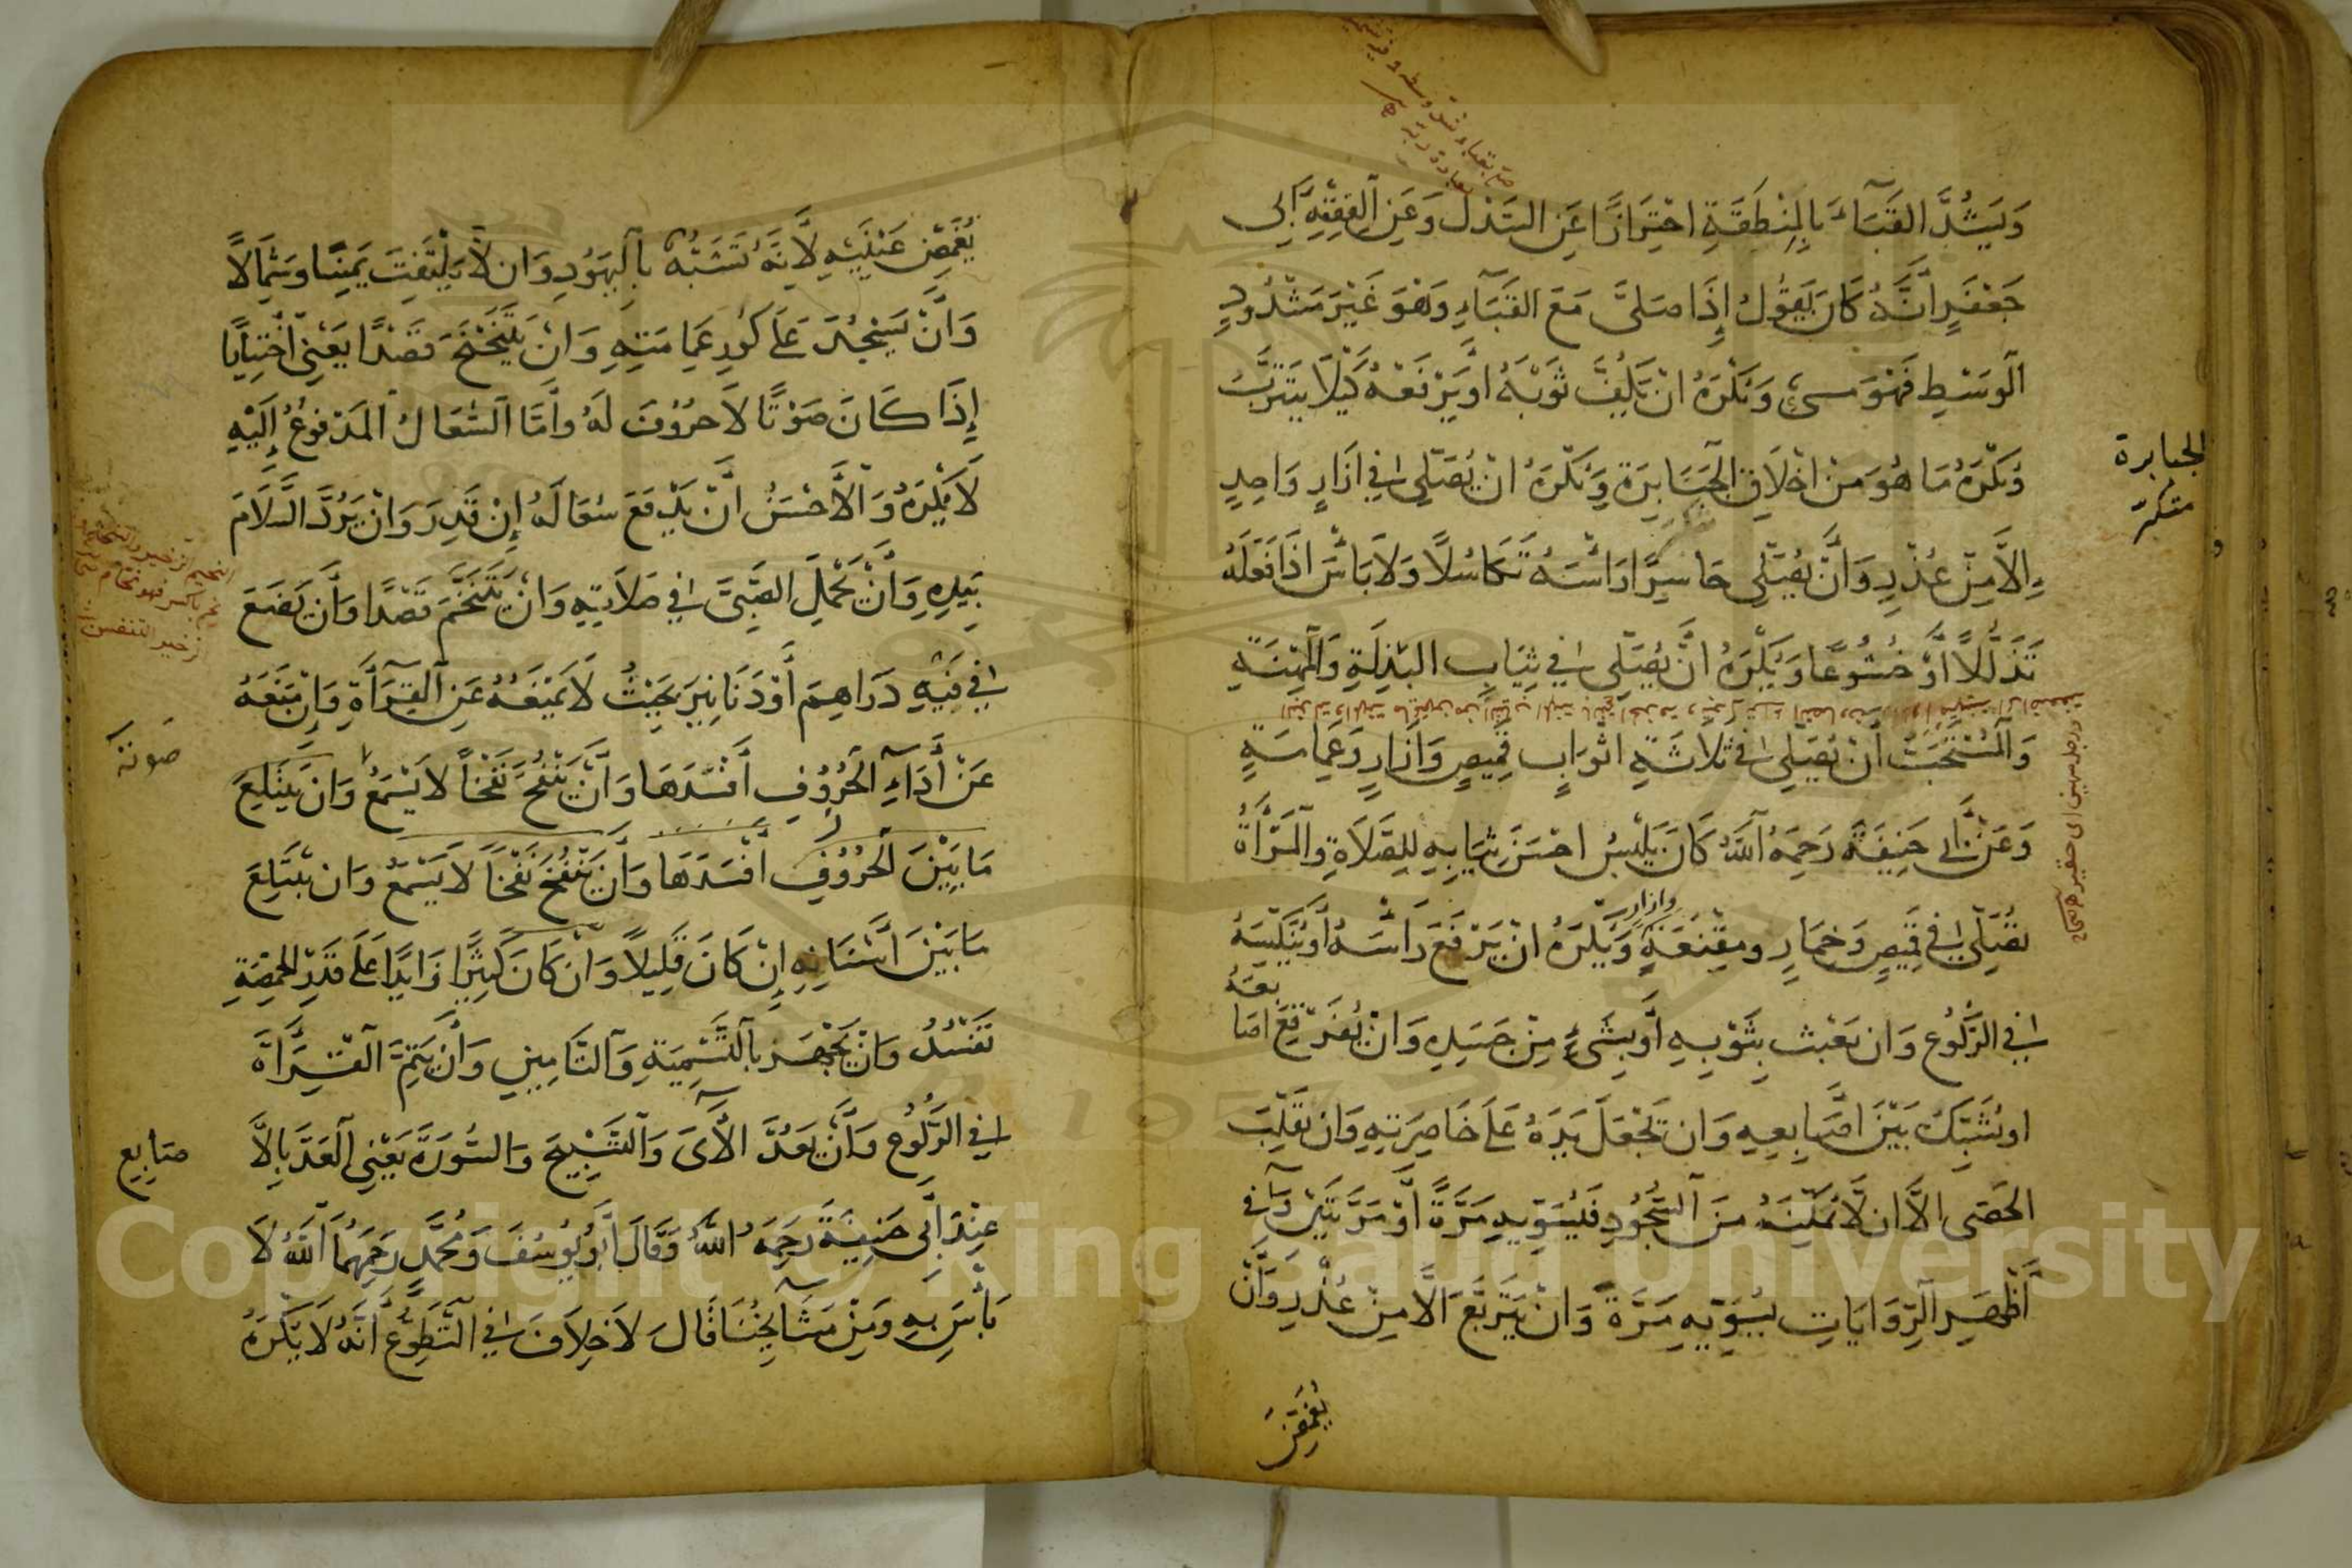 وَيَشُدَّ القَبَاءَ بِالمِنْطَقَةِ احْتِرَازًا عَنِ السَّدْلِ وَعَنِ الفَقِيْهِ اَبِى
جَعْفَرٍ اَنَّهُ كَانَ يَقُولُ إِذَا صَلَّى مَعَ القَبَآءِ وَهُوَ غَيْرَ مَشْدُودِ
الْوَسْطِ فَهُوَ مسىءٌ وَيُكْرَهُ انْ يَلُفَّ ثَوْبَهُ اوْ يَرْفَعْهُ كَيْلَا يَتَتَرَّبَ
وَيُكْرَهُ مَا هُوَ مِنْ اخْلَاقِ الْجَبَابِرَةِ وَيُكْرَهُ انْ يُصَلِّىَ فِي ازَارٍ وَاحِدٍ
إِلاَّ مِنْ عُذْرٍ وَاَنْ يُصَلِّى حَاسِرًا رَاْسَهُ تَكَاسُلًا وَلَا بَاْسَ اذَا فَعَلَهُ
تَذَلُّلًا اَوْ خُشُوعًا وَيُكْرَهُ اَنْ يُصَلِّى فِي ثِيَابِ البَذْلَةِ وَالْمِهْنَةِ
وَالْمُسْتَحَبُّ اَنْ يُصَلِّى فِي ثَلاثَةِ اثْوَابٍ قَمِيصٍ وَاَزَارٍ وَعِمَامَةٍ
وَعَنْ اَبِى حَنِيفَةَ رَحِمَهُ اللَّهُ كَانَ يَلْبَسُ احْسَنَ ثِيَابِهِ لِلصَّلَاةِ وَالْمَرْأَةُ
تُصَلِّى فِي قَمِيصٍ وَخِمَارٍ ومِقْنَعَةٍ وَيُكْرَهُ انْ يَرْفَعَ رَاْسَهُ اَوْ يُنَكِّسَهُ
وازار
فِي الرُّكُوعِ وَان يَعْبَث بِثَوْبِهِ اَوْ بِشَىْءٍ مِنْ جَسَدِهِ وَانْ يُفَرْقِعَ اصَابعَهُ
او يُشَبِّكَ بَيْنَ اَصَابِعِهِ وَان يَجْعَلَ يَدَهُ عَلَى خَاصِرَتِهِ وَان يُقَلِّبَ
الحَصَى الاَّ ان لَا يُمَكِّنَهُ مِنَ السُّجُودِ فَيُسَوِّيهِ مَرَّةً اَوْ مَرَّتَيْنِ وَفِى
اَظْهَرِ الرِّوَايَاتِ يُسَوِّيهِ مَرَّةً وَانْ يَتَرَبَّعَ الَّا مِنْ عُذْرٍ وَاَنْ
يُغَمِّضَ
الجبابرة
متكبر
يُغَمِّضَ عَيْنَيْهِ لِاَنَّهُ تَشَبُّهٌ بِالْيَهُودِ وَان لَا يَلْتَفِتَ يَمِينًا وَشِمَالًا
وَاَنْ يَسْجُدَ عَلَى كَوْرِ عِمَامَتِهِ وَانْ يَتَنَحْنَحَ قَصْدًا يَعْنِى اخْتِيَارًا
إِذَا كَانَ صَوْتًا لَا حُرُوفَ لَهُ وَاَمَّا السُّعَالُ المَدْفُوعُ إِلَيْهِ
لَا يُكْرَهُ وَالْاَحْسَنُ اَنْ يَدْفَعَ سُعَالَهُ إِنْ قَدِرَ وَانْ يَرُدَّ السَّلَامَ
بِيَدِهِ وَاَنْ يَحْمِلَ الصَّبِىَّ فِي صَلَاتِهِ وَانْ يَتَنَخَّمَ قَصْدًا وَاَنْ يَضَعَ
فِي فِيْهِ دَرَاهِمَ اَوْ دَنَانِيرَ بِحَيْثُ لَا يَمْنَعُهُ عَنِ الْقِرَاَةِ وَاِنْ مَنَعَهُ
عَنْ اَدَآءِ الْحُرُوفِ اَفْسَدَهَا وَاَنْ يَنْفُخَ نَفْخًا لا يُسْمَعُ وَانْ يَبْتَلِعَ
مَا بَيْنَ الْحُرُوفِ اَفْسَدَهَا وَاَنْ يَنْفُخَ نَفْخًا لَا يُسْمَعُ وَان يَبْتَلِعَ
مَا بَيْنَ اَسْنَانِهِ إِنْ كَانَ قَلِيلًا وَانْ كَانَ كَثِيرًا زَايدًا عَلَى قَدْرِ الْحِمَّصَةِ
تَفْسُدُ وَانْ يَجْهَرَ بِالتَّسْمِيَةِ وَالتَّامِينِ وَاَنْ يُتِمَّ الْقِرَاَةَ
فِي الرُّكُوعِ وَاَنْ يَعُدَّ الْآىَ وَالتَّسْبِيْحَ وَالسُّورَةَ يَعْنِى الْعَدَّ بِالْا
عِنْدَ اَبِى حَنِيفَةَ رَحِمَهُ اللَّهُ وَقَالَ اَبُو يُوسُفَ وَمُحَمَّدٍ رَحِمَهُمَا اللَّهُ لَا
بَاْسَ بِهِ وَمِنْ مَشَآيِخِنَا قَالَ لَا خِلَافَ فِي التَّطَوُّعِ اَنَّهُ لَا يُكْرَهُ
صوته
صَابِعِ
Copyright © King Saud University